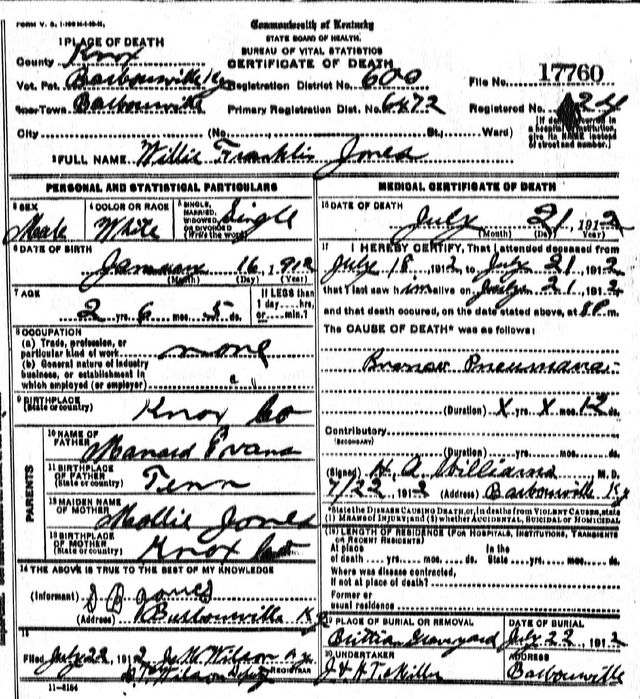 FORM V. S. 1-100 M-1-10-11.
Commonwealth of Kentucky
STATE BOARD OF HEALTH.
BUREAU OF VITAL STATISTICS
CERTIFICATE OF DEATH
1 PLACE OF DEATH
County Knox
Vot. Pct. Barbourville Ky Registration District No. 600 File No. 17760
Town Barbourville Primary Registration Dist. No. 6472 Registered No. 24
City (No. St., Ward) [If death occurred in a hospital or institution, give its NAME instead of street and number.]
2 FULL NAME Willie Franklin Jones
PERSONAL AND STATISTICAL PARTICULARS
3 SEX Male
4 COLOR OR RACE White
5 SINGLE, MARRIED, WIDOWED, OR DIVORCED (Write the word) Single
6 DATE OF BIRTH
January 16, 1912
(Month) (Day) (Year)
7 AGE
2 yrs. 6 mos. 5 ds.
If LESS than 1 day....hrs. or....min.?
8 OCCUPATION
(a) Trade, profession, or particular kind of work none
(b) General nature of industry business, or establishment in which employed (or employer)
9 BIRTHPLACE (State or country) Knox Co
PARENTS
10 NAME OF FATHER Manard Evans
11 BIRTHPLACE OF FATHER (State or country) Tenn
12 MAIDEN NAME OF MOTHER Mollie Jones
13 BIRTHPLACE OF MOTHER (State or country) Knox Co
14 THE ABOVE IS TRUE TO THE BEST OF MY KNOWLEDGE
(Informant) S B Jones
(Address) Barbourville Ky
15
Filed July 22, 1912 Wilson
Wilson Deputy REGISTRAR
11-3184
MEDICAL CERTIFICATE OF DEATH
16 DATE OF DEATH
July 21, 1912
(Month) (Day) (Year)
17 I HEREBY CERTIFY, That I attended deceased from
July 18, 1912 to July 21, 1912
that I last saw him alive on July 21, 1912
and that death occured, on the date stated above, at 8 P.m.
The CAUSE OF DEATH* was as follows:
Pneumana
(Duration) X yrs. X mos. 12 ds.
Contributory
(SECONDARY)
(Duration) yrs. mos. ds.
(Signed) H. A. Williams M. D.
7/22, 1912 (Address) Barbourville Ky
*State the DISEASE CAUSING DEATH, or, in deaths from VIOLENT CAUSES, state
(1) MEANS OF INJURY; and (2) whether ACCIDENTAL, SUICIDAL or HOMICIDAL
18 LENGTH OF RESIDENCE (FOR HOSPITALS, INSTITUTIONS, TRANSIENTS OR RECENT RESIDENTS)
At place of death yrs. mos. ds. In the State yrs. mos. ds.
Where was disease contracted,
if not at place of death?
Former or
usual residence
19 PLACE OF BURIAL OR REMOVAL
Brittian Graveyard
DATE OF BURIAL
July 22, 1912
20 UNDERTAKER
Miller
ADDRESS
Barbourville